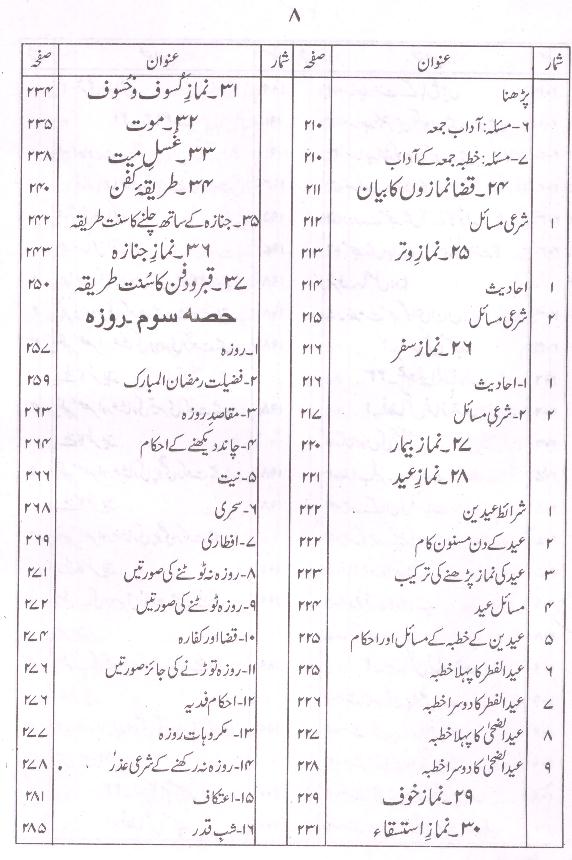 ۸
شمار عنوان صفحہ
پڑھنا
۶۔مسئلہ: آداب جمعہ ۲۱۰
۷۔مسئلہ: خطبہ جمعہ کے آداب ۲۱۰
۲۴۔قضا نمازوں کا بیان ۲۱۱
۱ شرعی مسائل ۲۱۲
۲۵۔نماز وتر ۲۱۳
۱ احادیث ۲۱۴
۲ شرعی مسائل ۲۱۵
۲۶۔نماز سفر ۲۱۶
۱ ۱۔احادیث ۲۱۶
۲ ۲۔شرعی مسائل ۲۱۷
۲۷۔نماز بیمار ۲۲۰
۲۸۔نماز عید ۲۲۱
۱ شرائط عیدین ۲۲۲
۲ عید کے دن مسنون کام ۲۲۲
۳ عید کی نماز پڑھنے کی ترکیب ۲۲۳
۴ مسائل عید ۲۲۴
۵ عیدین کے خطبہ کے مسائل اور احکام ۲۲۵
۶ عید الفطر کا پہلا خطبہ ۲۲۵
۷ عید الفطر کا دوسرا خطبہ ۲۲۶
۸ عید الضحیٰ کا پہلا خطبہ ۲۲۷
۹ عید الضحیٰ کا دوسرا خطبہ ۲۲۸
۲۹۔نماز خوف ۲۲۹
۳۰۔نماز استسقاء ۲۳۱
شمار عنوان صفحہ
۳۱۔نمازِ کسوف و خسوف ۲۳۴
۳۲۔موت ۲۳۵
۳۳۔غُسلِ میت ۲۳۸
۳۴۔طریقۂ کفن ۲۴۰
۳۵۔جنازہ کے ساتھ چلنے کا سنت طریقہ ۲۴۲
۳۶۔نمازِ جنازہ ۲۴۳
۳۷۔قبر و دفن کا سُنت طریقہ ۲۵۰
حصہ سوم۔روزہ
۱۔روزہ ۲۵۷
۲۔فضیلت رمضان المبارک ۲۵۹
۳۔مقاصدِ روزہ ۲۶۳
۴۔چاند دیکھنے کے احکام ۲۶۴
۵۔نیت ۲۶۶
۶۔سحری ۲۶۸
۷۔افطاری ۲۶۹
۸۔روزہ نہ ٹوٹنے کی صورتیں ۲۷۱
۹۔روزہ ٹوٹنے کی صورتیں ۲۷۲
۱۰۔قضا اور کفارہ ۲۷۴
۱۱۔روزہ توڑنے کی جائز صورتیں ۲۷۶
۱۲۔احکام فدیہ ۲۷۶
۱۳۔مکروہات روزہ ۲۷۷
۱۴۔روزہ نہ رکھنے کے شرعی عذر ۲۷۸
۱۵۔اعتکاف ۲۸۱
۱۶۔شبِ قدر ۲۸۵